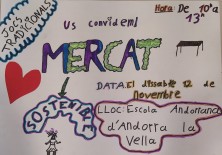 JOCS TRADICIONALS
Us convidem!
Hora: De 10ª a 13ª
MERCAT
SOSTENIBLE
DATA: El dissabte 12 de novembre
LLOC: Escola Andorrana
d'Andorra la
Vella